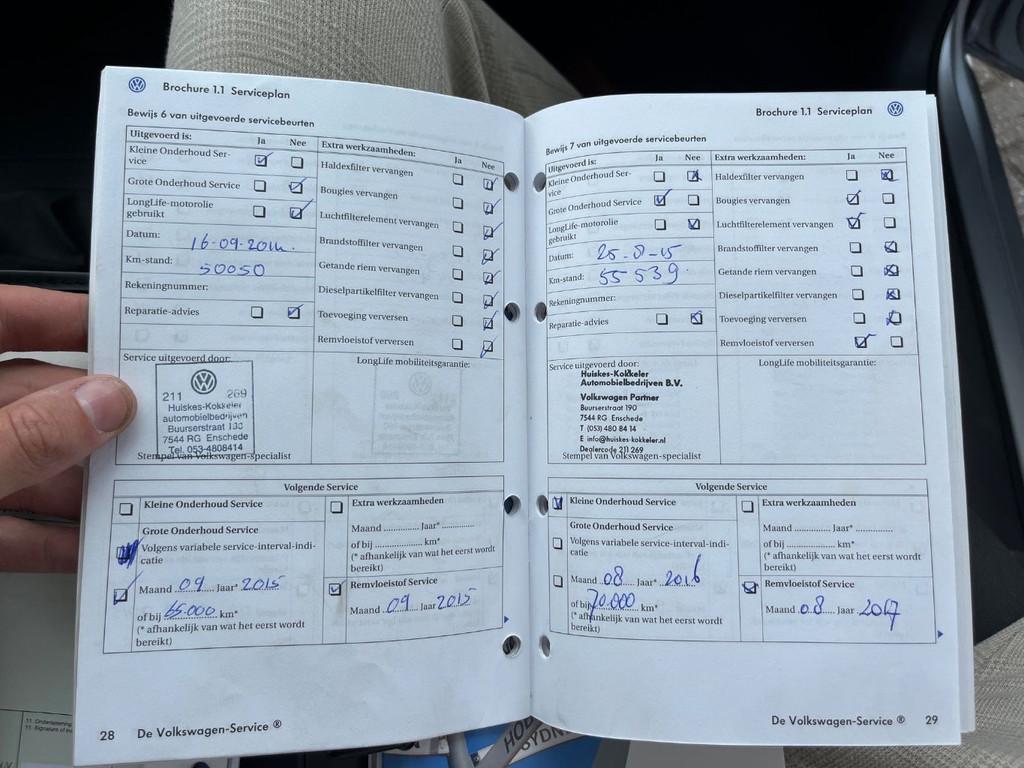 Brochure 1.1 Serviceplan
Bewijs 6 van uitgevoerde servicebeurten
Uitgevoerd is: Ja Nee
Kleine Onderhoud Ser-
vice
Grote Onderhoud Service
LongLife-motorolie
gebruikt
Datum: 16-09-2014.
Km-stand: 50050
Rekeningnummer:
Reparatie-advies
Extra werkzaamheden: Ja Nee
Haldexfilter vervangen
Bougies vervangen
Luchtfilterelement vervangen
Brandstoffilter vervangen
Getande riem vervangen
Dieselpartikelfilter vervangen
Toevoeging verversen
Remvloeistof verversen
Service uitgevoerd door:
211 269
Huiskes-Kokkeler
automobielbedrijven
Buurserstraat 190
7544 RG Enschede
Tel. 053-4808414
Stempel van Volkswagen-specialist
LongLife mobiliteitsgarantie:
Volgende Service
Kleine Onderhoud Service
Grote Onderhoud Service
Volgens variabele service-interval-indi-
catie
Maand 09 Jaar* 2015
of bij 65.000 km*
(* afhankelijk van wat het eerst wordt
bereikt)
Extra werkzaamheden
Maand .............. Jaar* .............
of bij ................... km*
(* afhankelijk van wat het eerst wordt
bereikt)
Remvloeistof Service
Maand 09 Jaar 2015
28 De Volkswagen-Service ®
Brochure 1.1 Serviceplan
Bewijs 7 van uitgevoerde servicebeurten
Uitgevoerd is: Ja Nee
Kleine Onderhoud Ser-
vice
Grote Onderhoud Service
LongLife-motorolie
gebruikt
Datum: 25-8-15
Km-stand: 55 539
Rekeningnummer:
Reparatie-advies
Extra werkzaamheden: Ja Nee
Haldexfilter vervangen
Bougies vervangen
Luchtfilterelement vervangen
Brandstoffilter vervangen
Getande riem vervangen
Dieselpartikelfilter vervangen
Toevoeging verversen
Remvloeistof verversen
Service uitgevoerd door:
Huiskes-Kokkeler
Automobielbedrijven B.V.
Volkswagen Partner
Buurserstraat 190
7544 RG Enschede
T (053) 480 84 14
E info@huiskes-kokkeler.nl
Dealercode 211 269
Stempel van Volkswagen-specialist
LongLife mobiliteitsgarantie:
Volgende Service
Kleine Onderhoud Service
Grote Onderhoud Service
Volgens variabele service-interval-indi-
catie
Maand 08 Jaar* 2016
of bij 70.000 km*
(* afhankelijk van wat het eerst wordt
bereikt)
Extra werkzaamheden
Maand .............. Jaar* .............
of bij ................... km*
(* afhankelijk van wat het eerst wordt
bereikt)
Remvloeistof Service
Maand 08 Jaar 2017
De Volkswagen-Service ® 29